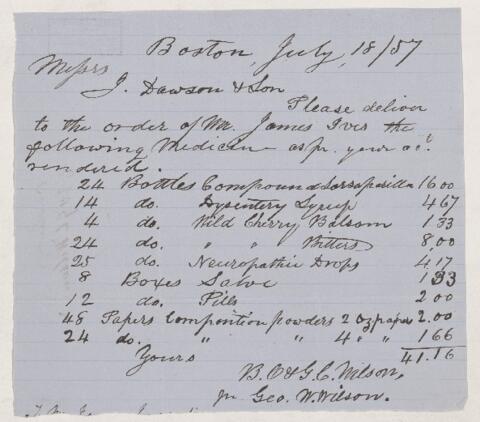 Boston, July, 18/57
Messrs
J. Dawson & Son
Please deliver
to the order of Mr. James Iver the
following Medicine as pr. your act.
rendered.
24 Bottles Compound Sarsaparilla 16 00
14 do. Dysentery Syrup 4 67
4 do. Wild Cherry Balsom 1 33
24 do. " " Bitters 8,00
25 do. Neuropathic Drops 4 17
8 Boxes Salve 1 33
12 do. Pills 2 00
48 Papers Composition powders 2 Oz papers 2.00
24 do. " " 4 " " 1 66
Yours 41.16
B. O & G. C. Wilson,
pr Geo. W. Wilson.